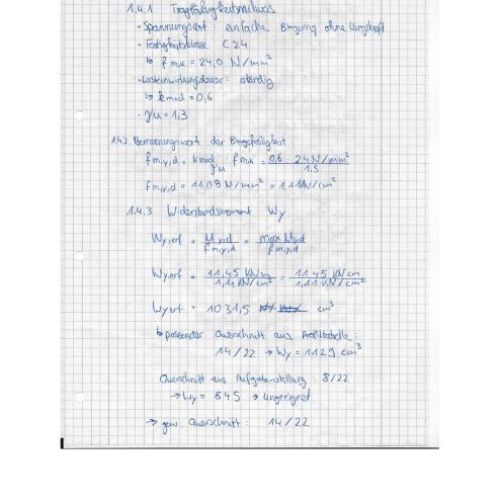 1.4.1 Tragfähigkeitsnachweis
- Spannungsart: einfache Biegung ohne Längskraft
- Festigkeitsklasse C24
↳ fm,k = 24,0 N/mm²
- Lasteinwirkungsdauer: ständig
↳ kmod = 0,6
- γM = 1,3
1.4.2. Bemessungswert der Biegefestigkeit
fm,y,d = kmod/γM · fm,k = 0,6 · 24 N/mm² / 1,3
fm,y,d = 11,08 N/mm² = 1,11 kN/cm²
1.4.3 Widerstandsmoment Wy
Wy,erf = My,d / fm,y,d = max My,d / fm,y,d
Wy,erf = 11,45 kNm / 1,11 kN/cm² = 1145 kNcm / 1,11 kN/cm²
Wy,erf = 1031,5 cm³
↳ passender Querschnitt aus Profiltabelle:
14/22 → Wy = 1129 cm³
Querschnitt aus Aufgabenstellung: 8/22
→ Wy = 645 → ungeeignet
→ gew. Querschnitt: 14/22